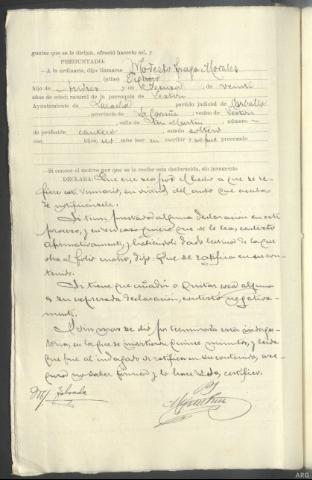 guntas que se le dirijan, ofreció hacerlo así, y
PREGUNTADO:
—A la ordinaria, dijo llamarse Modesto Fraga Morales
(alias)
hijo de Andrés y de Manuela de veinti
años de edad, natural de la parroquia de
Ayuntamiento de Laracha partido judicial de Carballo
provincia La Coruña, vecino de
calle de San Martín, número —
de profesión cantero, estado soltero
con hijos, no sabe leer ni escribir no fué procesado
—Si conoce el motivo por que se le recibe esta declaración, sin juramento
DECLARA: Que cree sea por el hecho a que se re-
fiere este sumario, en virtud del auto que acaba
de notificársele.
Si tiene prestada alguna declaración en este
proceso, y en su caso quiere que se le lea, contestó
afirmativamente, y habiéndole dado lectura de la que
obra al folio dijo: Que se ratifica en su con-
tenido.
Si tiene que añadir o quitar cosa alguna
a su expresada declaración, contestó negativa-
mente.
Y S.Sª mandó se dé por terminada esta indaga-
toria, en la que se invirtieron quince minutos, y leída
que fué al indagado se ratificó en su contenido, ase-
guró no saber firmar y lo hace S.Sª, certifico.